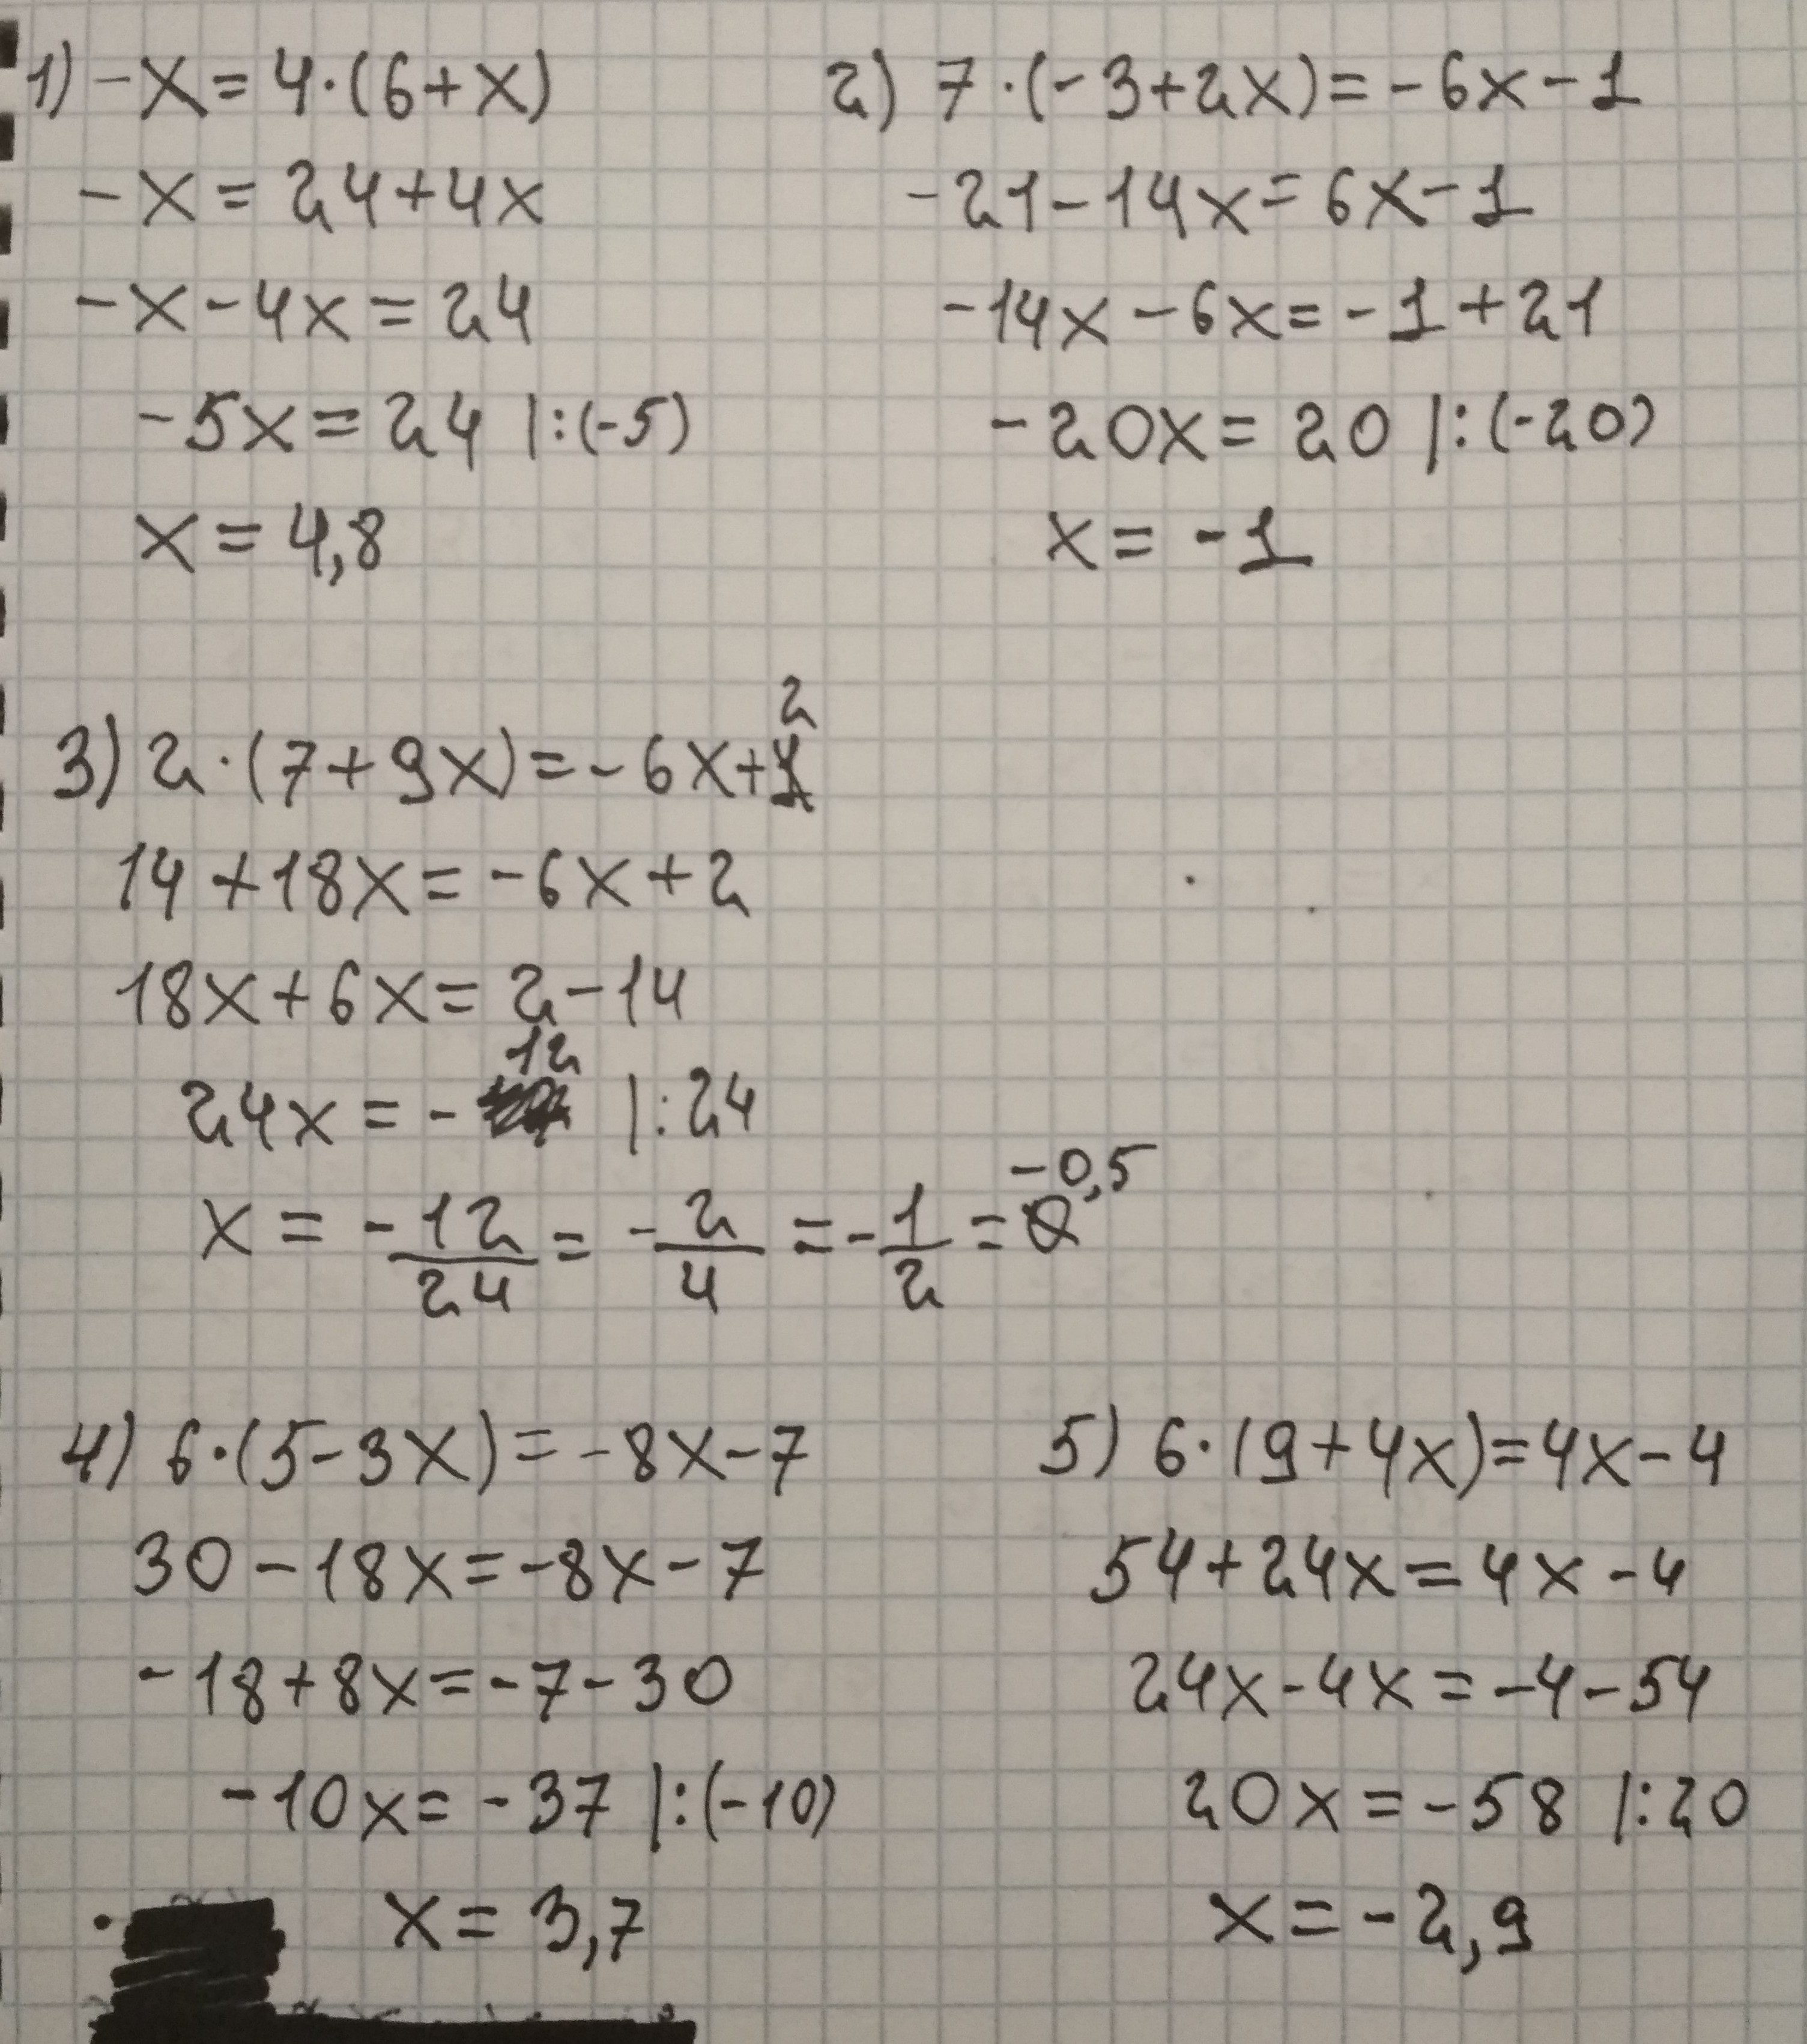 1) -x = 4·(6+x)
-x = 24+4x
-x-4x = 24
-5x = 24 |:(-5)
x = 4,8
2) 7·(-3+2x) = -6x-1
-21-14x = 6x-1
-14x-6x = -1+21
-20x = 20 |:(-20)
x = -1
3) 2·(7+9x) = -6x+2
14+18x = -6x+2
18x+6x = 2-14
24x = -12 |:24
x = -12/24 = -2/4 = -1/2 = -0,5
4) 6·(5-3x) = -8x-7
30-18x = -8x-7
-18+8x = -7-30
-10x = -37 |:(-10)
x = 3,7
5) 6·(9+4x) = 4x-4
54+24x = 4x-4
24x-4x = -4-54
20x = -58 |:20
x = -2,9